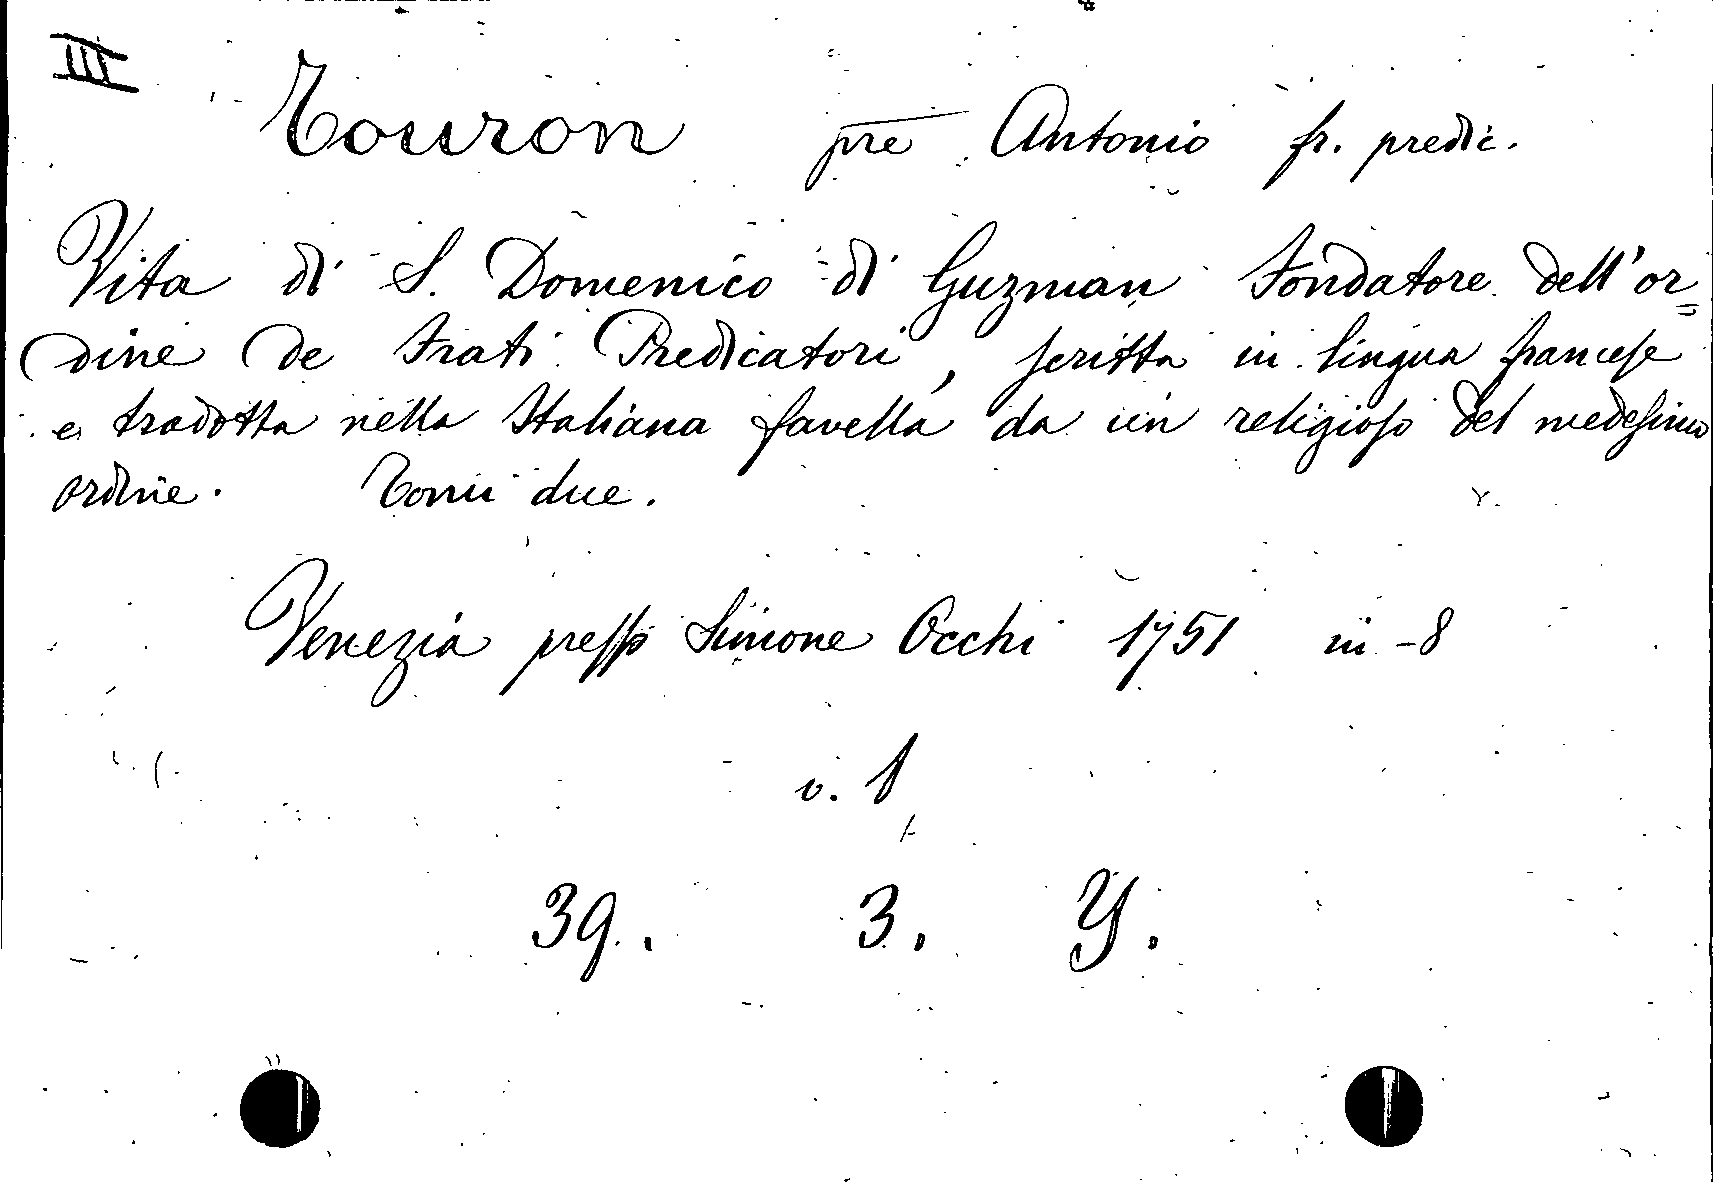 III
Touron pre Antonio fr. predic.
Vita di S. Domenico di Guzman Fondatore dell'or=
dine de Frati Predicatori, scritta in lingua francese
e tradotta nella Italiana favella da un religioso del medesimo
ordine. Tomi due.
Venezia presso Simone Occhi 1751 in-8
v. 1
39. 3. Y.